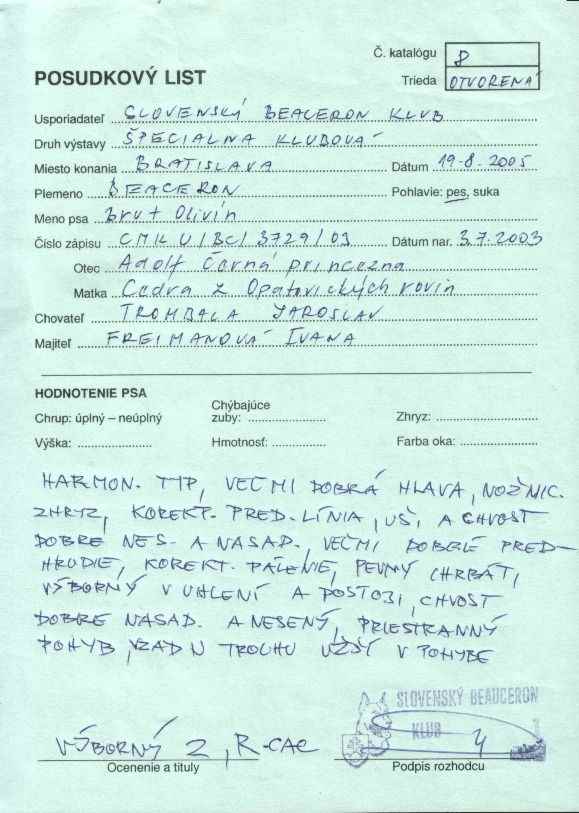 Č. katalógu 8
POSUDKOVÝ LIST
Trieda OTVORENÁ
Usporiadateľ SLOVENSKÝ BEAUCERON KLUB
Druh výstavy ŠPECIÁLNA KLUBOVÁ
Miesto konania BRATISLAVA Dátum 19.8.2005
Plemeno BEACERON Pohlavie: pes, suka
Meno psa Brut Olivín
Číslo zápisu CMKU/BC/3729/03 Dátum nar. 3.7.2003
Otec Adolf Černá princezna
Matka Cedra z Opatovických rovin
Chovateľ TROMBALA JAROSLAV
Majiteľ FREIMANOVÁ IVANA
HODNOTENIE PSA
Chrup: úplný – neúplný Chýbajúce zuby: Zhryz:
Výška: Hmotnosť: Farba oka:
HARMON. TYP, VEĽMI DOBRÁ HLAVA, NOŽNIC.
ZHRYZ, KOREKT. PRED. LÍNIA, UŠI A CHVOST
DOBRE NES. A NASAD. VEĽMI DOBRÉ PRED-
HRUDIE, KOREKT. PÁLENIE, PEVNÝ CHRBÁT,
VÝBORNÝ V UHLENÍ A POSTOJI, CHVOST
DOBRE NASAD. A NESENÝ, PRIESTRANNÝ
POHYB, VZADU TROCHU UŽŠÍ V POHYBE
SLOVENSKÝ BEAUCERON
KLUB
VÝBORNÝ 2, R-CAC
Ocenenie a tituly Podpis rozhodcu